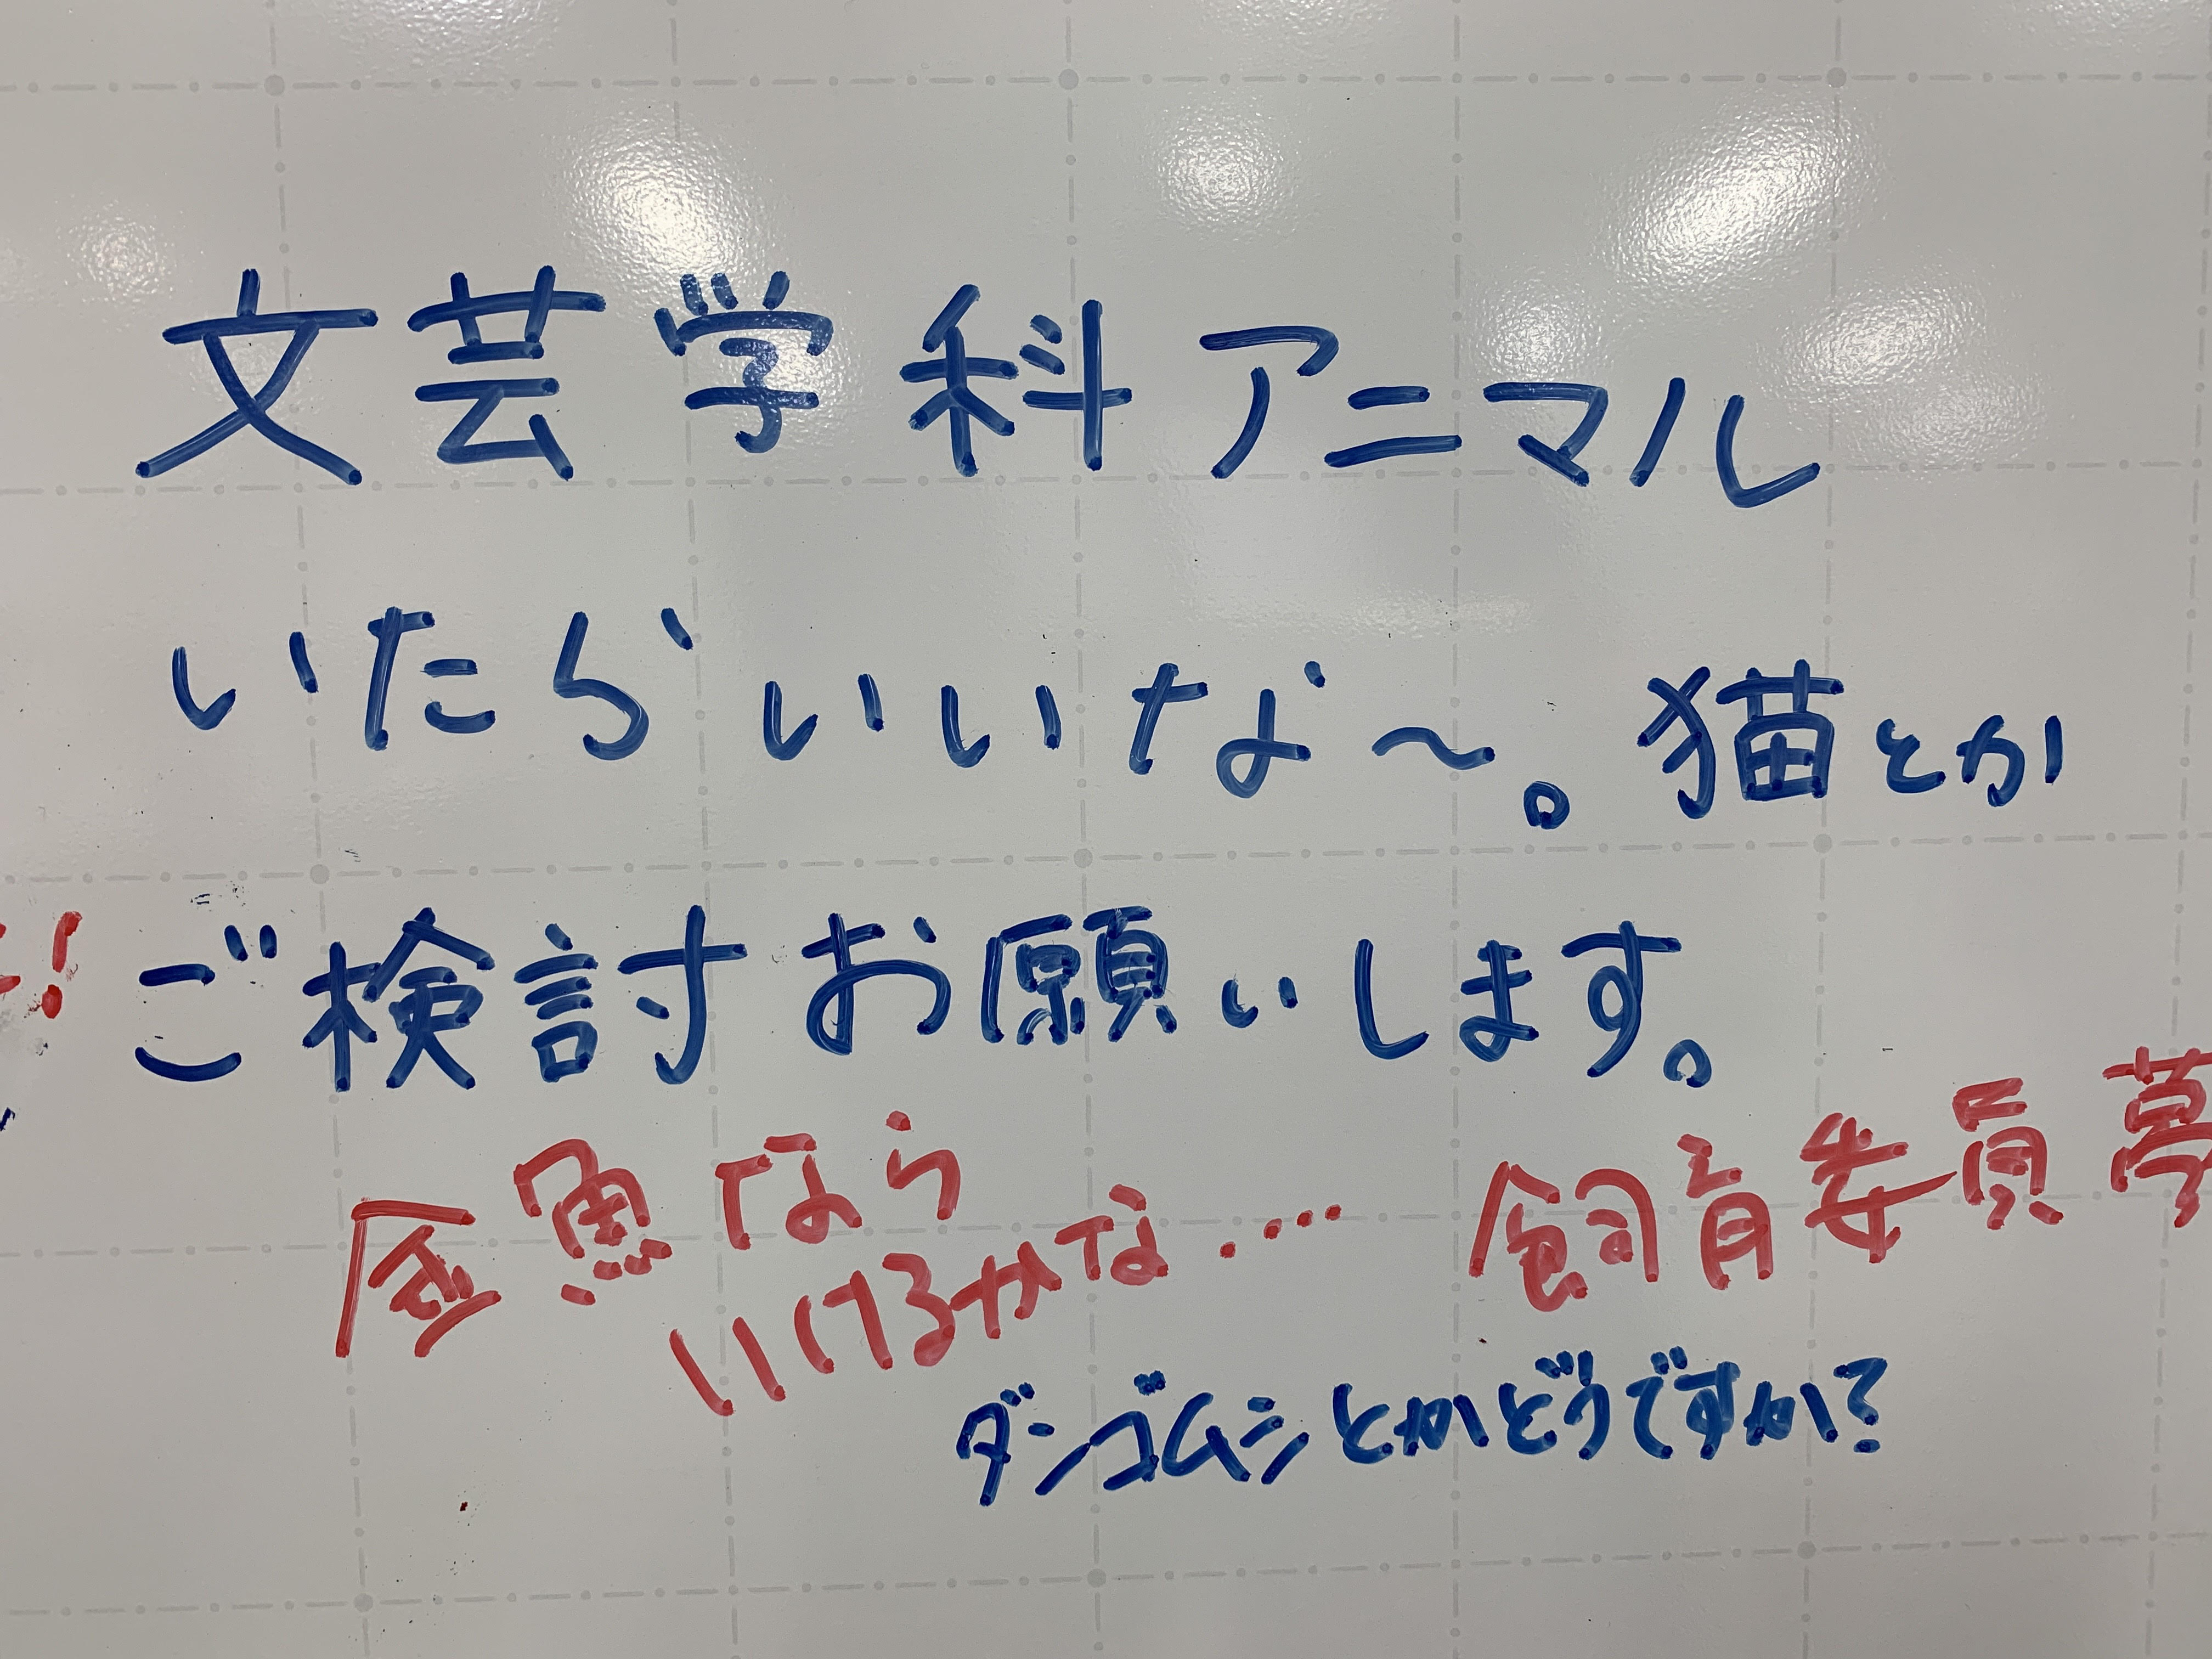 文芸学科アニマル
いたらいいな〜。猫とか
ご検討お願いします。
金魚なら
いけるかな…
飼育委員募
ダンゴムシとかどうですか?